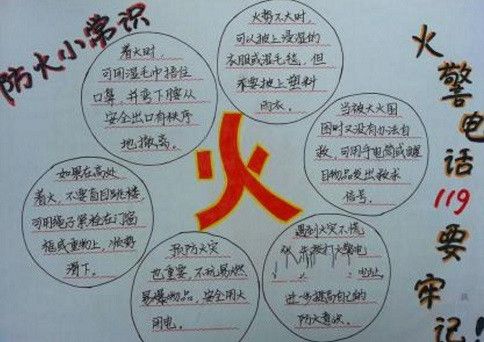 防火小常识
着火时,
可用湿毛巾捂住
口鼻,并弯下腰从
安全出口有秩序
地撤离。
火势不大时,
可以披上浸湿的
衣服或湿毛毯,但
不要披上塑料
雨衣。
火警电话119要牢记!
当被大火围
困时又没有办法自
救,可用手电筒或醒
目物品发出求救
信号。
火
如果在高处
着火,不要盲目跳楼,
可用绳子紧栓在门窗
框或重物上,顺势
滑下。
预防火灾
也重要,不玩易燃
易爆物品,安全用火
用电。
遇到火灾不慌
拨打火警电
进一步提高自己的
防火意识。